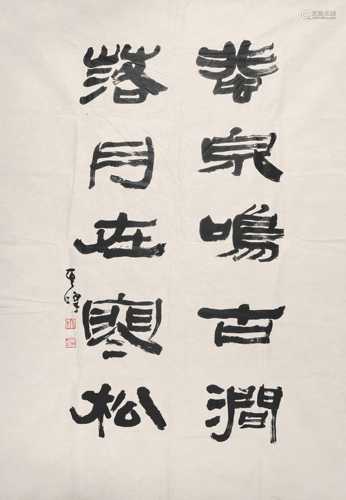 春泉鳴古澗
落月在寒松